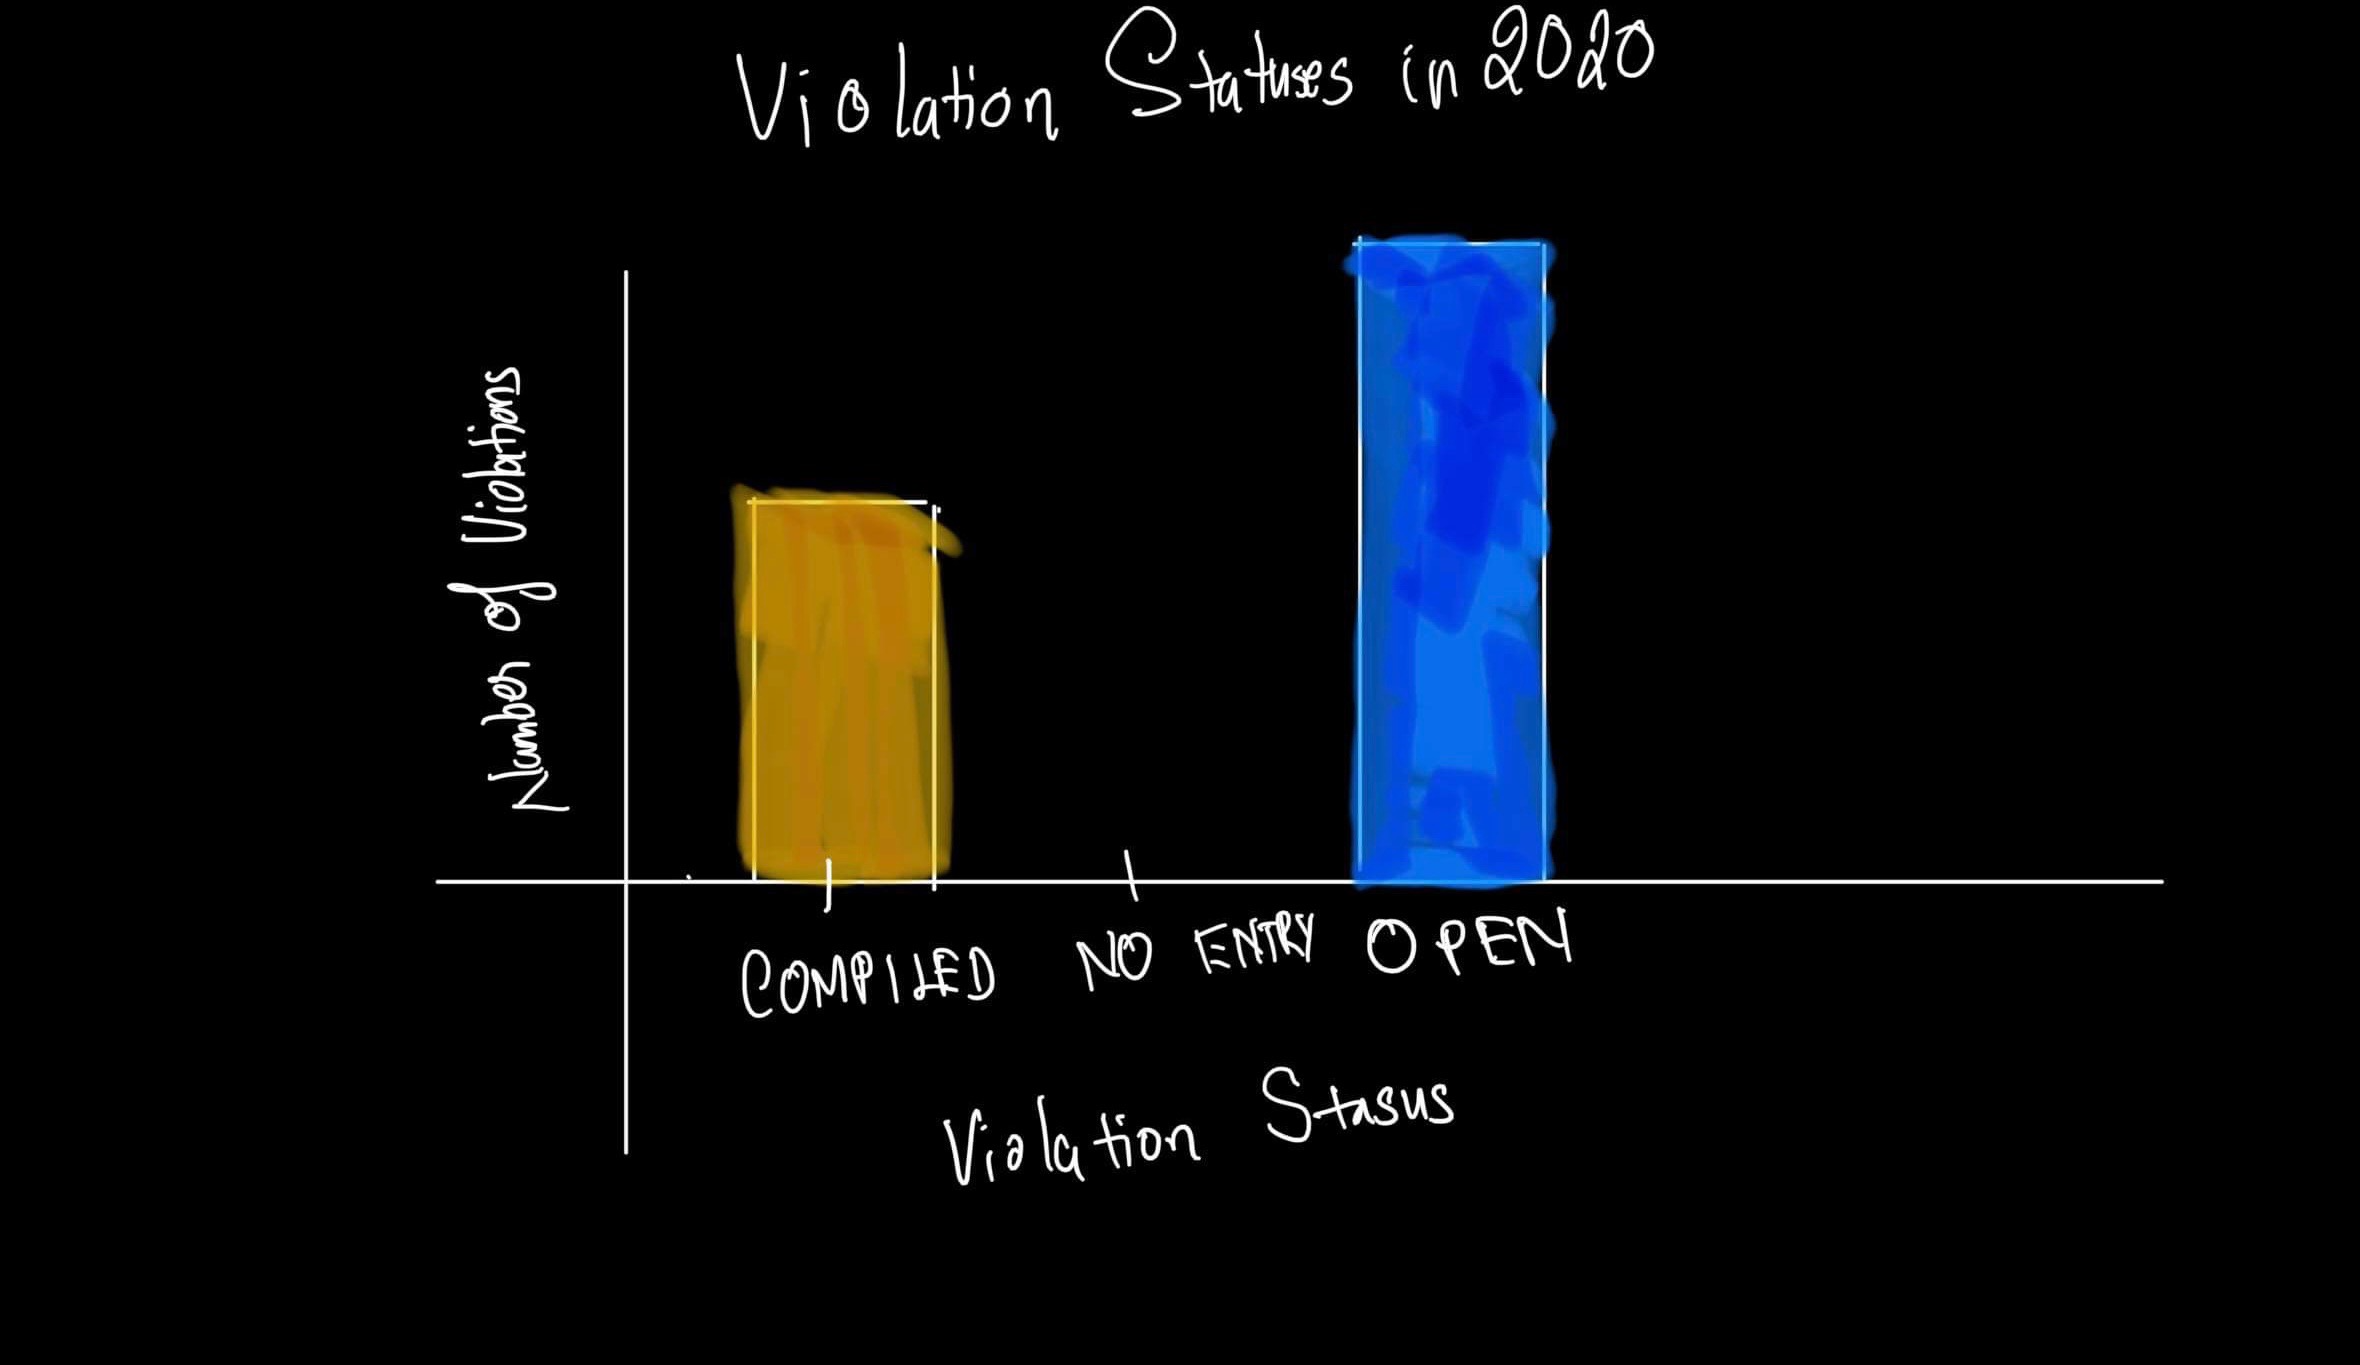 Violation Statuses in 2020
Number of Violations
COMPILED NO ENTRY OPEN
Violation Stasus